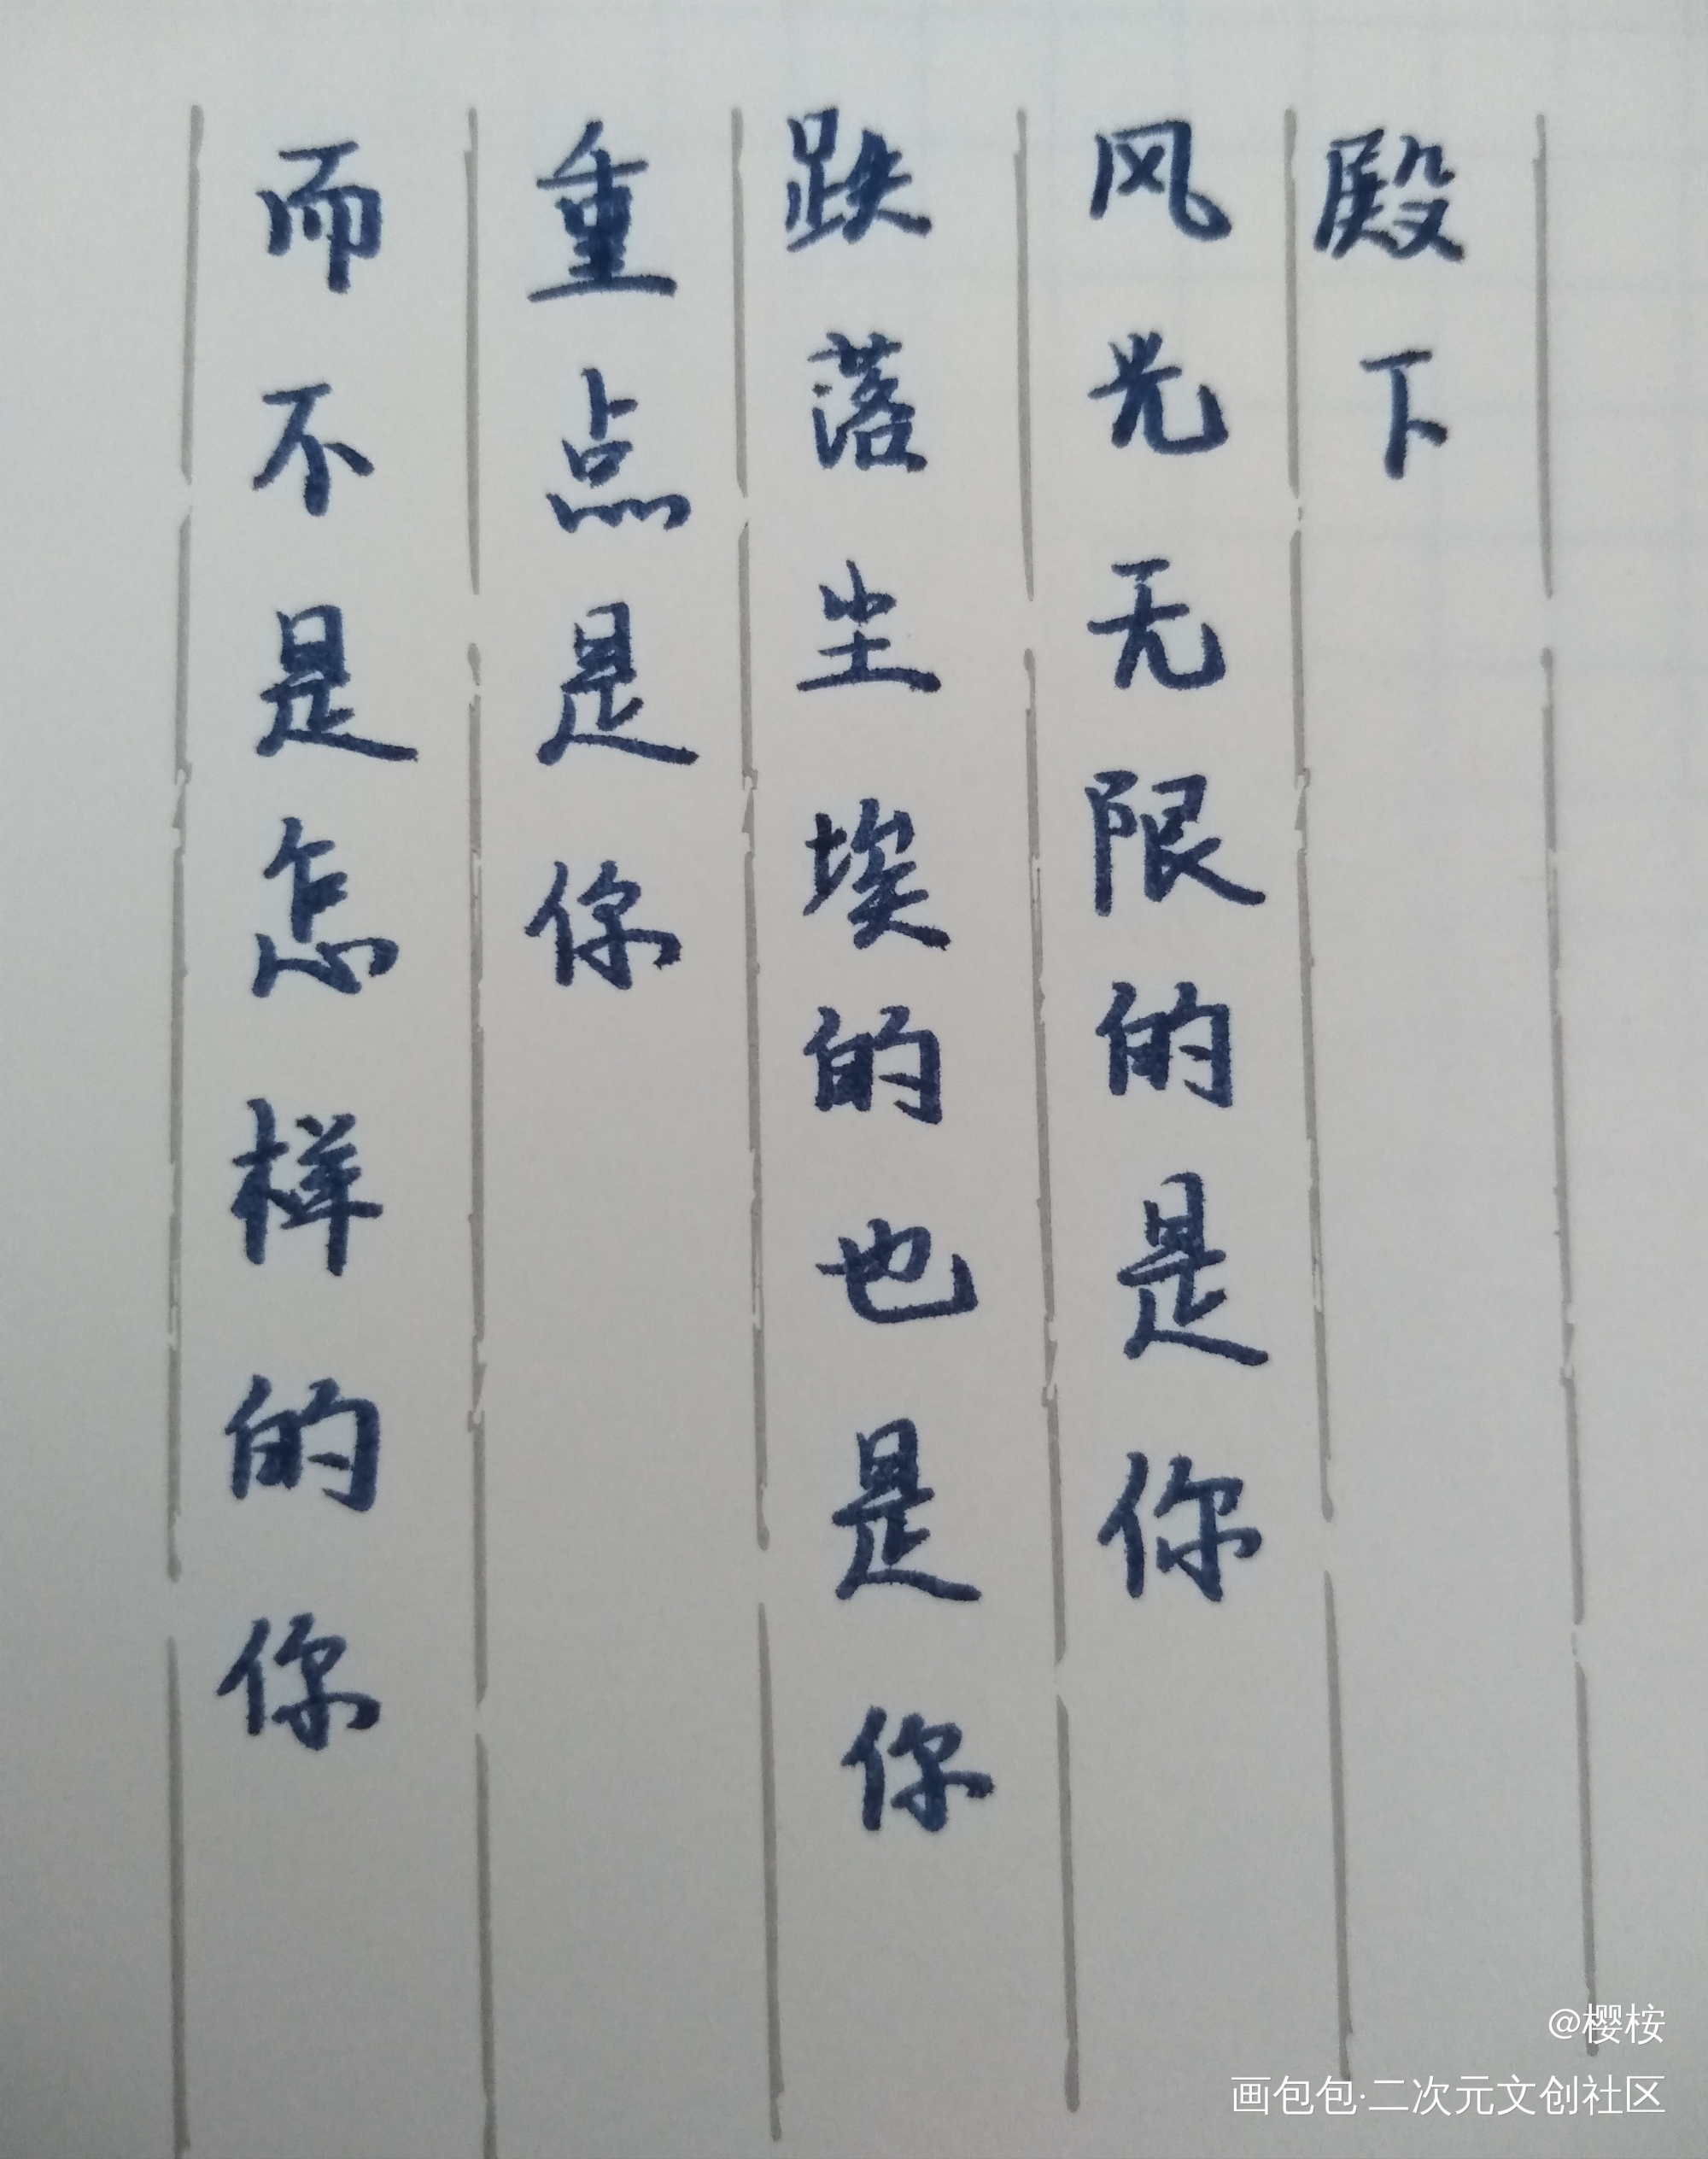 殿下
风光无限的是你
跌落尘埃的也是你
重点是你
而不是怎样的你
@樱桉
画包包·二次元文创社区